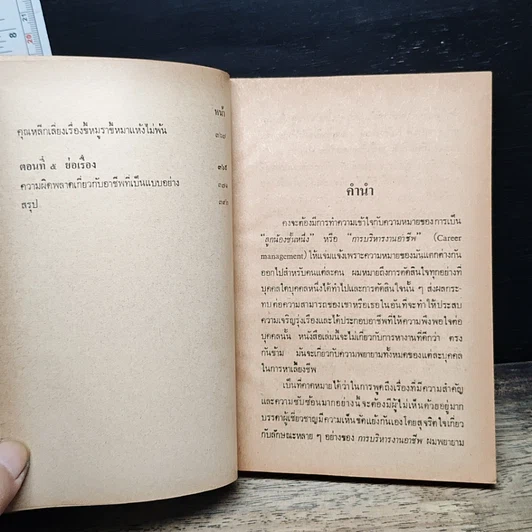 หน้า
คุณหลีกเลี่ยงเรื่องขี้หมูราขี้หมาแห้งไม่พ้น
ตอนที่ ๕ ย่อเรื่อง ๓๖๕
ความผิดพลาดเกี่ยวกับอาชีพที่เป็นแบบอย่าง
สรุป
คำนำ
คงจะต้องมีการทำความเข้าใจกับความหมายของการเป็น
"ลูกน้องชั้นหนึ่ง" หรือ "การบริหารงานอาชีพ" (Career
management) ให้แจ่มแจ้งเพราะความหมายของมันแตกต่างกัน
ออกไปสำหรับคนแต่ละคน ผมหมายถึงการตัดสินใจทุกอย่างที่
บุคคลใดบุคคลหนึ่งได้ทำไปและการตัดสินใจนั้น ๆ ส่งผลกระ-
ทบต่อความสามารถของเขาหรือเธอในอันที่จะทำให้ประสบ
ความเจริญรุ่งเรืองและได้ประกอบอาชีพที่ให้ความพึงพอใจต่อ
บุคคลนั้น หนังสือเล่มนี้จะไม่เกี่ยวกับการหางานที่ดีกว่า ตรง
กันข้าม มันจะเกี่ยวกับความพยายามทั้งหมดของแต่ละบุคคล
ในการหาเลี้ยงชีพ
เป็นที่คาดหมายได้ว่าในการพูดถึงเรื่องที่มีความสำคัญ
และความซับซ้อนมากอย่างนี้จะต้องมีผู้ไม่เห็นด้วยอยู่มาก
บรรดาผู้เชี่ยวชาญมีความเห็นขัดแย้งกันเองโดยสุจริตใจเกี่ยว
กับลักษณะหลาย ๆ อย่างของ การบริหารงานอาชีพ ผมพยายาม